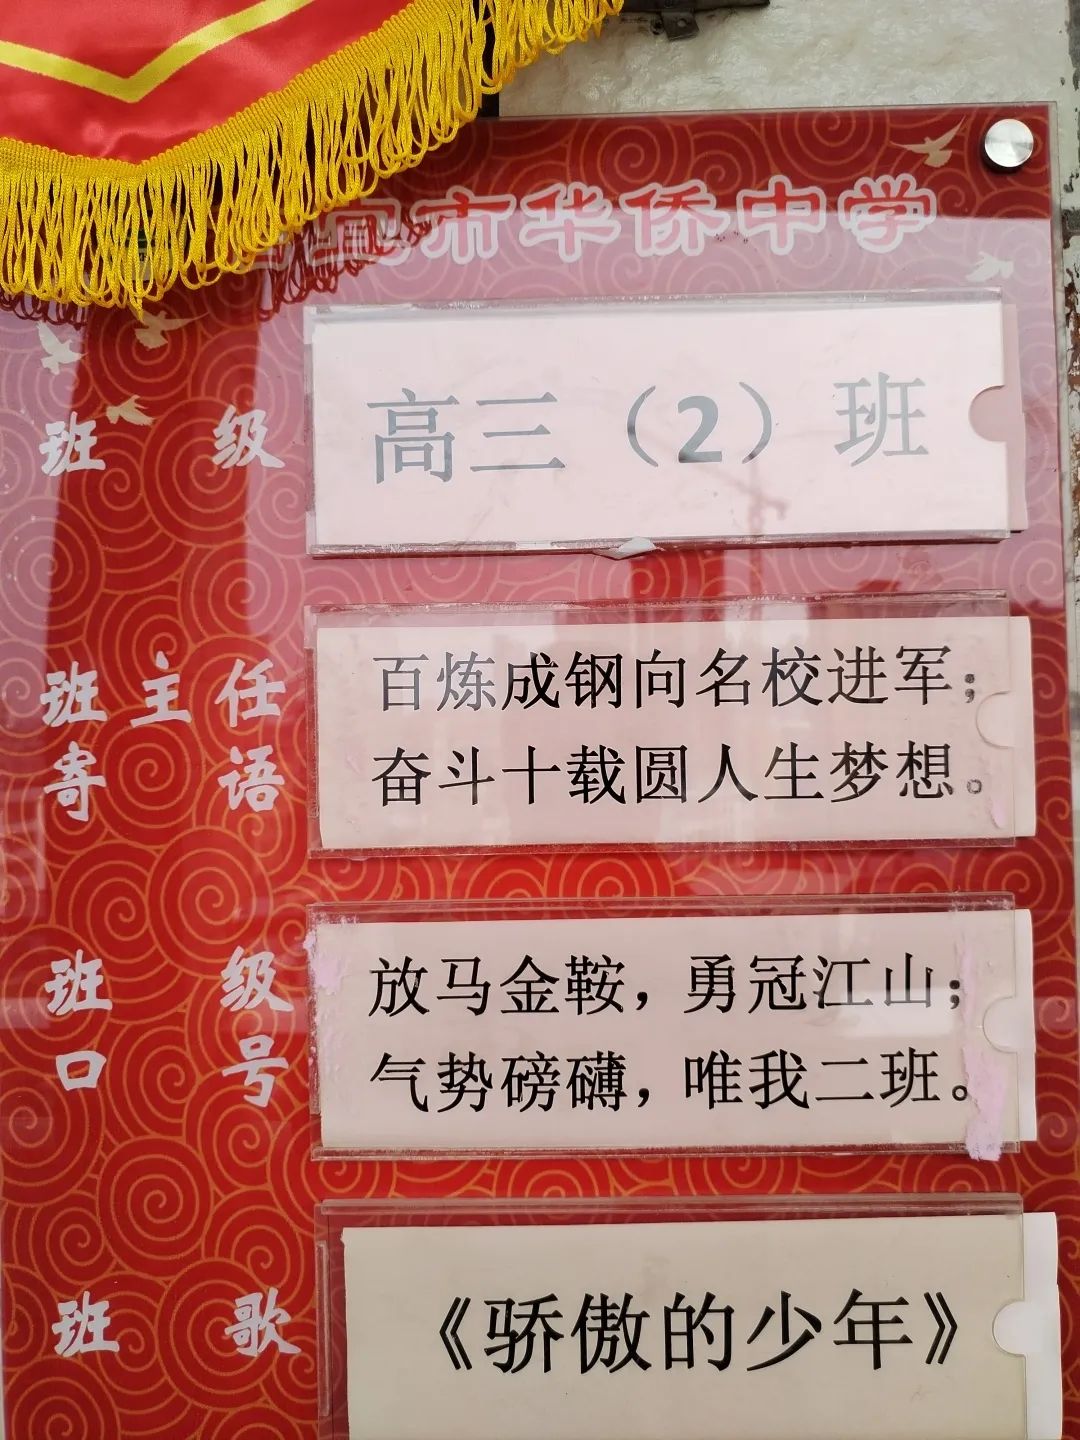 宜市华侨中学
班级 高三（2）班
班主任寄语 百炼成钢向名校进军；
奋斗十载圆人生梦想。
班级口号 放马金鞍，勇冠江山；
气势磅礴，唯我二班。
班歌 《骄傲的少年》